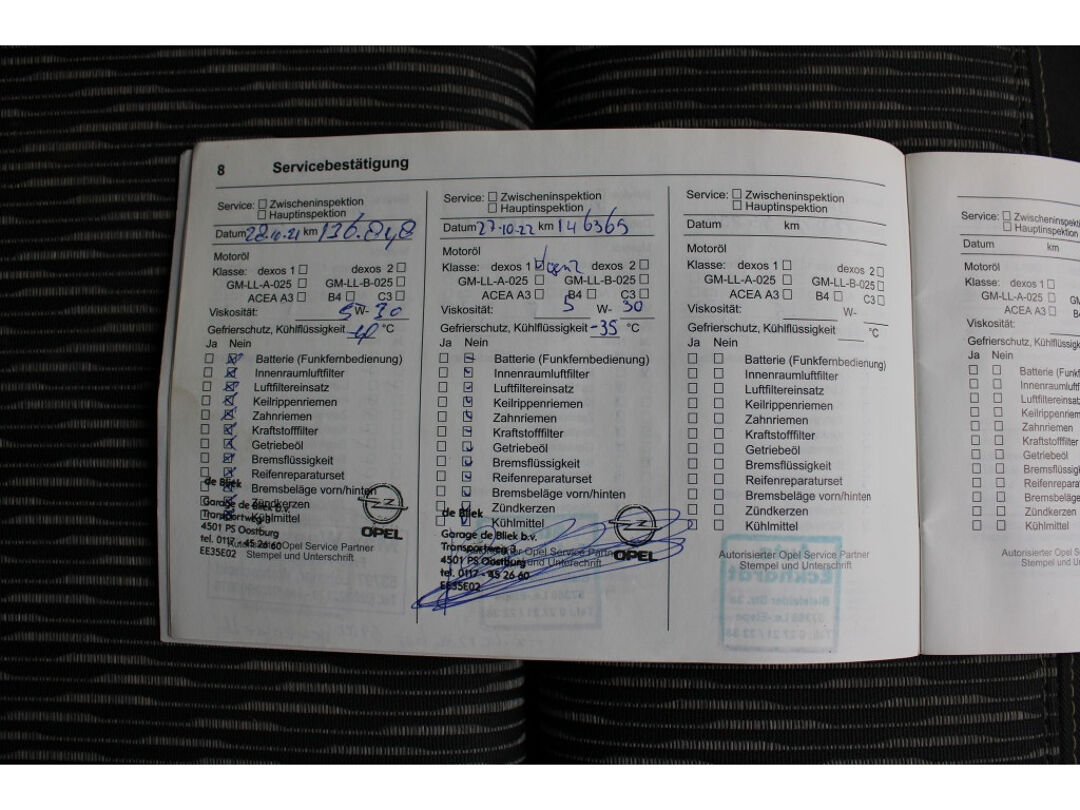 8 Servicebestätigung
Service: Zwischeninspektion
Hauptinspektion
Datum 28-10-21 km 136.848
Motoröl
Klasse: dexos 1 dexos 2
GM-LL-A-025 GM-LL-B-025
ACEA A3 B4 C3
Viskosität: 5 W- 30
Gefrierschutz, Kühlflüssigkeit -40 °C
Ja Nein
Batterie (Funkfernbedienung)
Innenraumluftfilter
Luftfiltereinsatz
Keilrippenriemen
Zahnriemen
Kraftstofffilter
Getriebeöl
Bremsflüssigkeit
Reifenreparaturset
Bremsbeläge vorn/hinten
Zündkerzen
Kühlmittel
de Bliek
Garage de Bliek b.v.
Transportweg 3
4501 PS Oostburg
tel. 0117 - 45 26 60
EE35E02
OPEL
Opel Service Partner
Stempel und Unterschrift
Service: Zwischeninspektion
Hauptinspektion
Datum 27-10-22 km 146365
Motoröl
Klasse: dexos 1 dexos 2
GM-LL-A-025 GM-LL-B-025
ACEA A3 B4 C3
Viskosität: 5 W- 30
Gefrierschutz, Kühlflüssigkeit -35 °C
Ja Nein
Batterie (Funkfernbedienung)
Innenraumluftfilter
Luftfiltereinsatz
Keilrippenriemen
Zahnriemen
Kraftstofffilter
Getriebeöl
Bremsflüssigkeit
Reifenreparaturset
Bremsbeläge vorn/hinten
Zündkerzen
Kühlmittel
de Bliek
Garage de Bliek b.v.
Transportweg 3
4501 PS Oostburg
tel. 0117 - 45 26 60
EE35E02
OPEL
Opel Service Partner
und Unterschrift
Service: Zwischeninspektion
Hauptinspektion
Datum km
Motoröl
Klasse: dexos 1 dexos 2
GM-LL-A-025 GM-LL-B-025
ACEA A3 B4 C3
Viskosität: W-
Gefrierschutz, Kühlflüssigkeit °C
Ja Nein
Batterie (Funkfernbedienung)
Innenraumluftfilter
Luftfiltereinsatz
Keilrippenriemen
Zahnriemen
Kraftstofffilter
Getriebeöl
Bremsflüssigkeit
Reifenreparaturset
Bremsbeläge vorn/hinten
Zündkerzen
Kühlmittel
Autorisierter Opel Service Partner
Stempel und Unterschrift
Service: Zwischeninspekti
Hauptinspektion
Datum km
Motoröl
Klasse: dexos 1
GM-LL-A-025 GM
ACEA A3 B
Viskosität:
Gefrierschutz, Kühlflüssigk
Ja Nein
Batterie (Funk
Innenraumluftf
Luftfiltereinsat
Keilrippenriem
Zahnriemen
Kraftstofffilter
Getriebeöl
Bremsflüssig
Reifenrepara
Bremsbeläge
Zündkerzen
Kühlmittel
Autorisierter Opel
Stempel und U